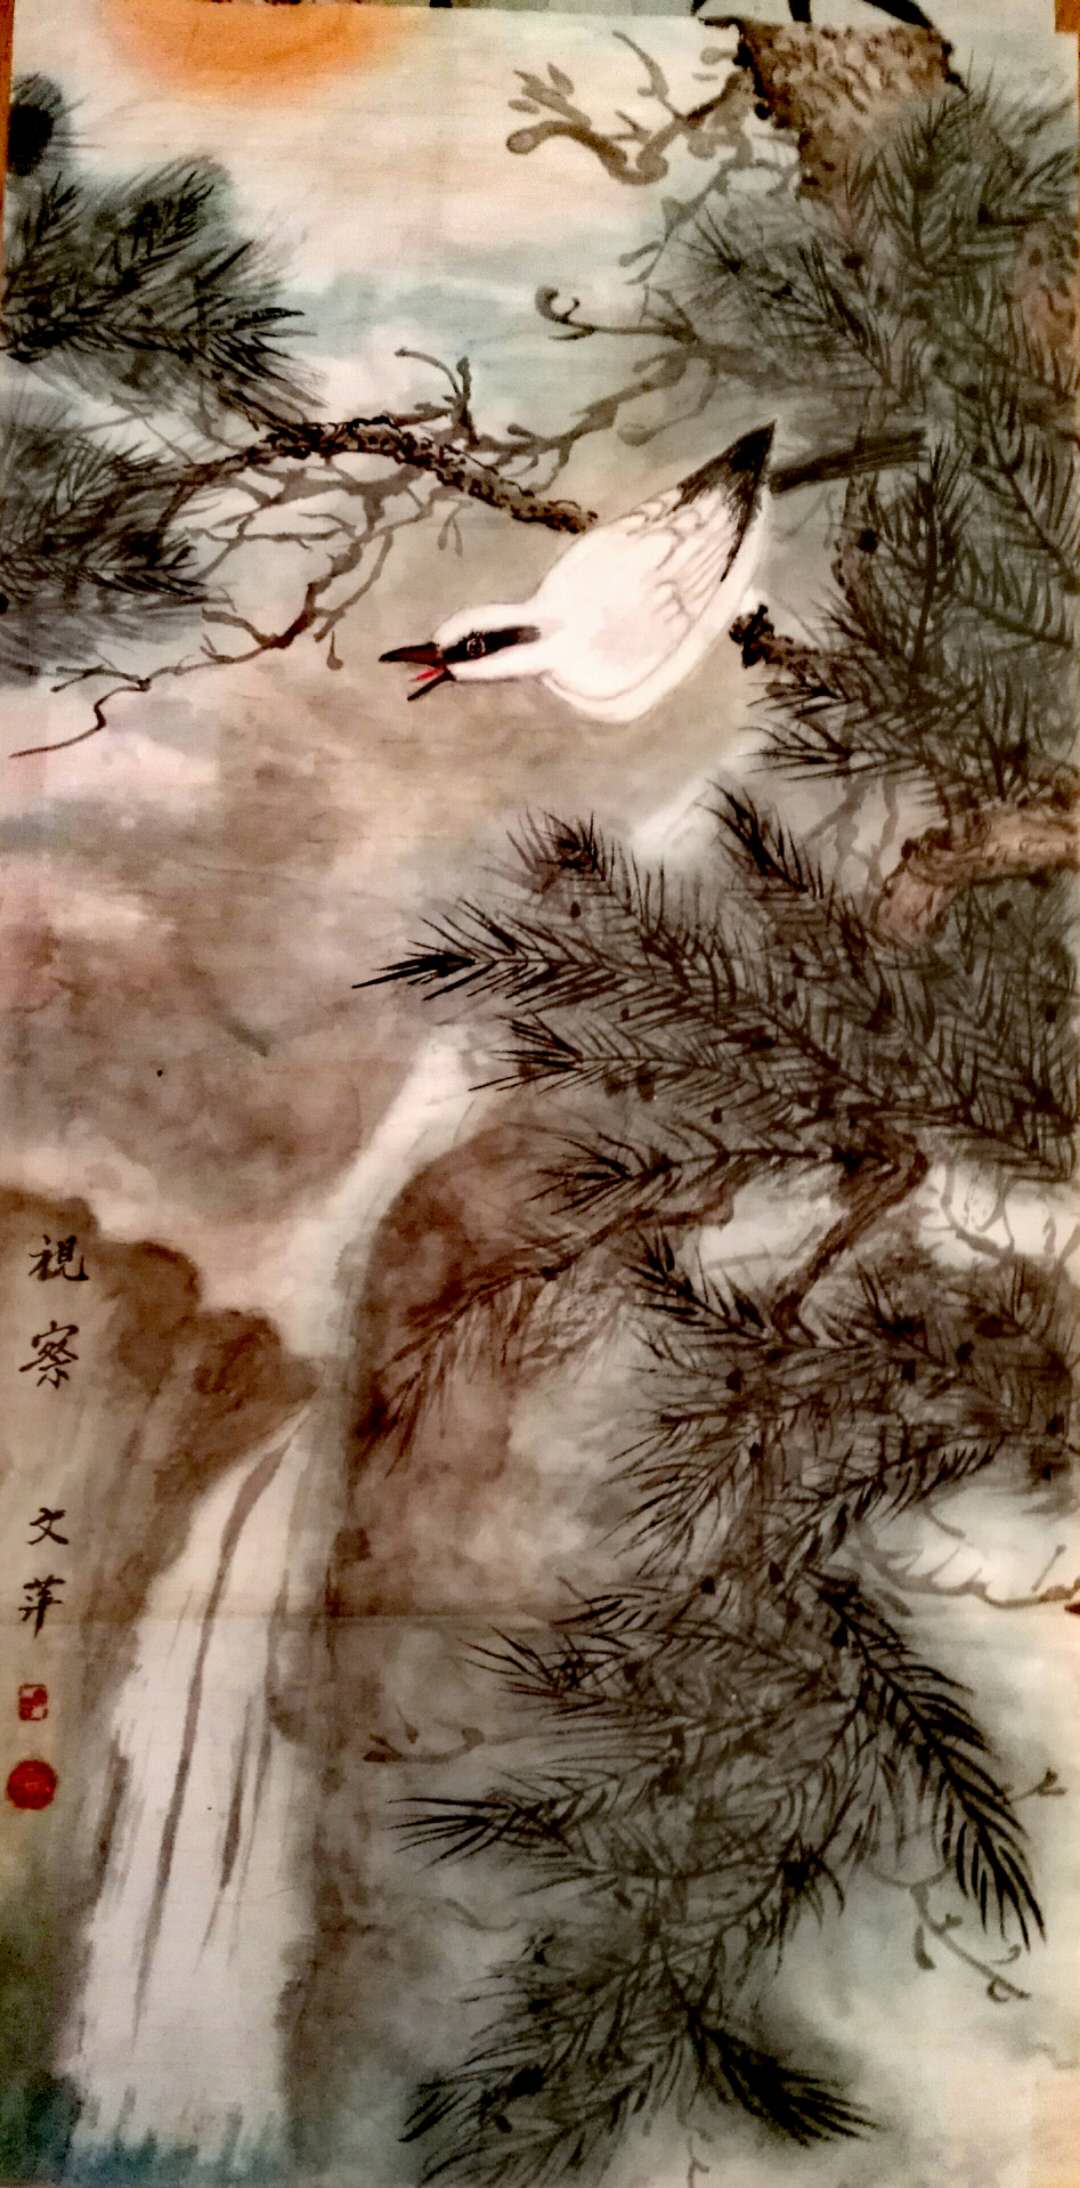 視察
文萍